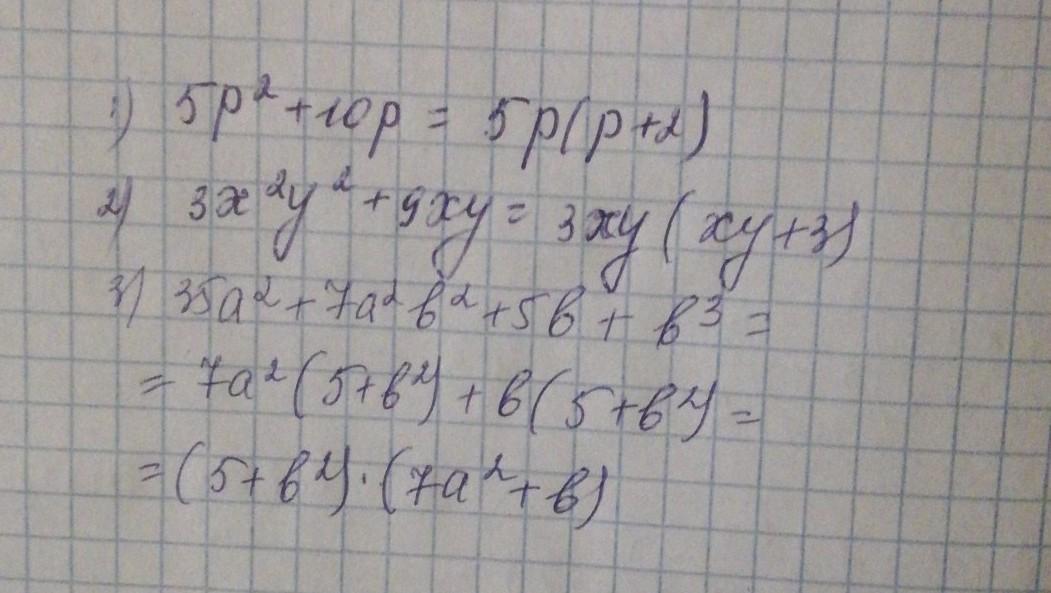 1) 5p² + 10p = 5p(p+2)
2) 3x²y² + 9xy = 3xy(xy+3)
3) 35a² + 7a²b² + 5b + b³ =
= 7a²(5+b²) + b(5+b²) =
= (5+b²)·(7a²+b)